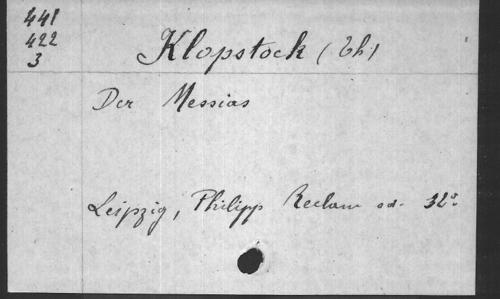 441
422
3
Klopstock (Th.)
Der Messias
Leipzig, Philipp Reclam sd. 32º